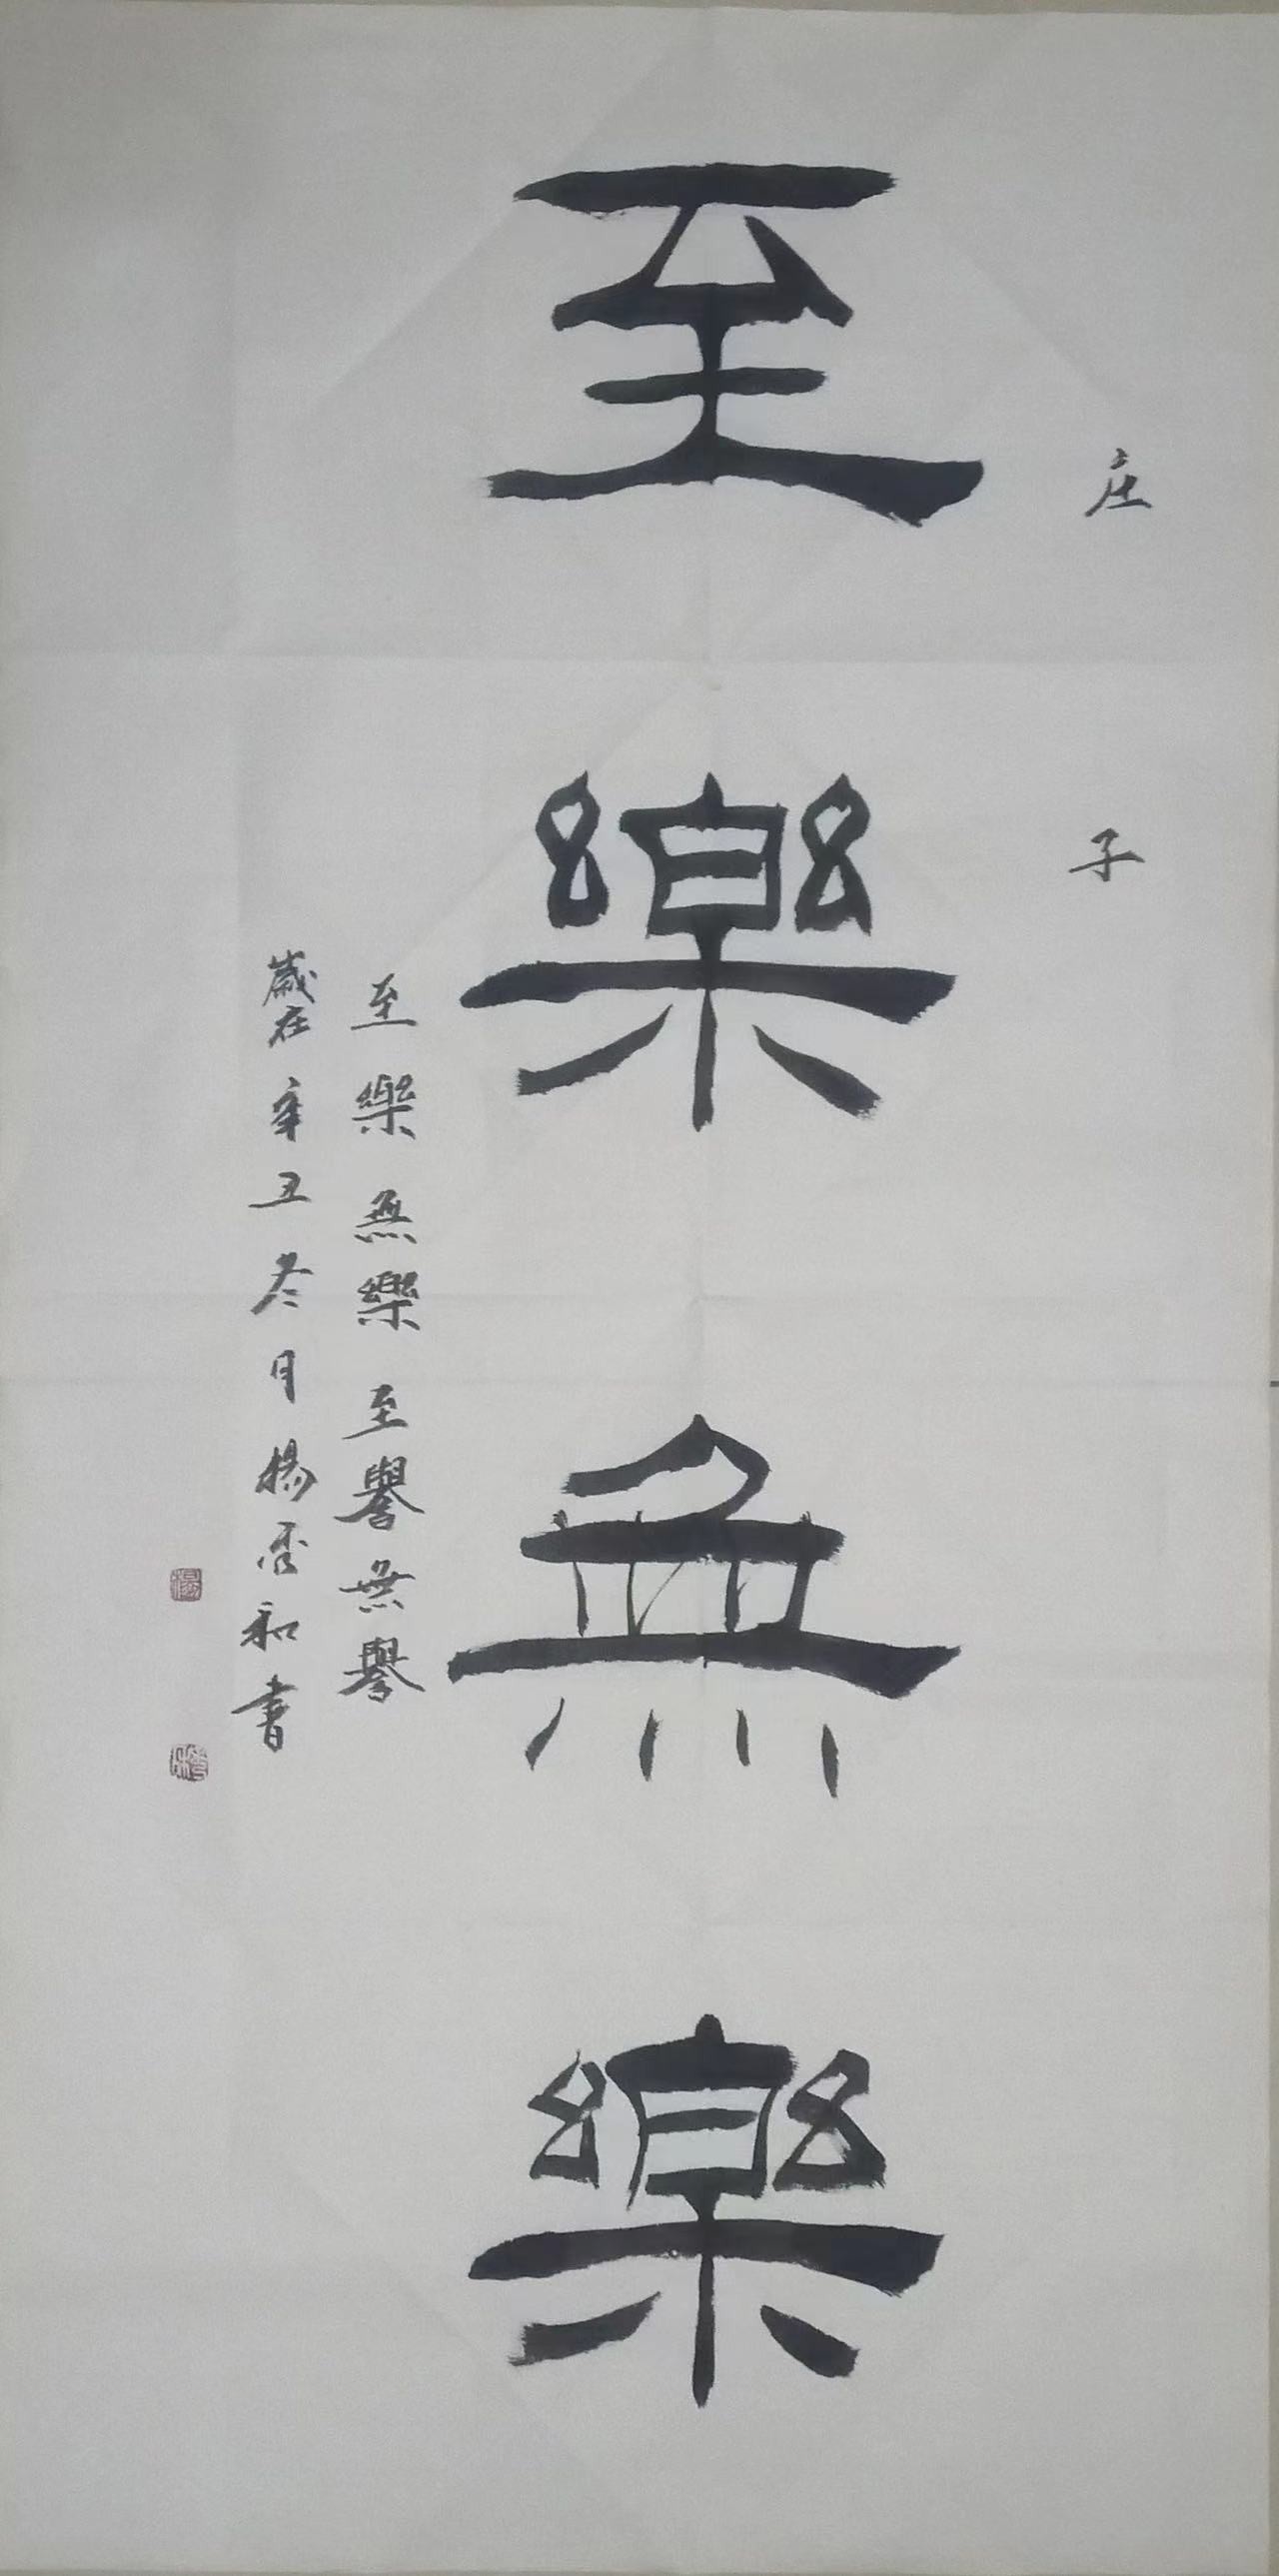 庄子
至樂無樂
至樂無樂至譽無譽
歲在辛丑冬月楊 和書